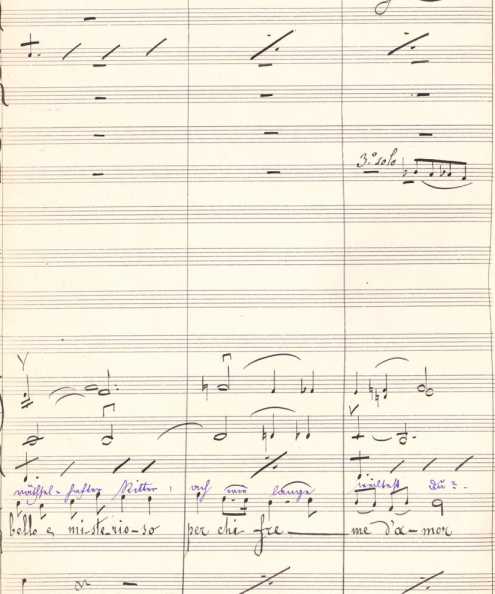 3.º solo
räthsel-hafter Ritter, ach wie lange weiltest du?
bello e misterio-so per chi fre me d'a-mor